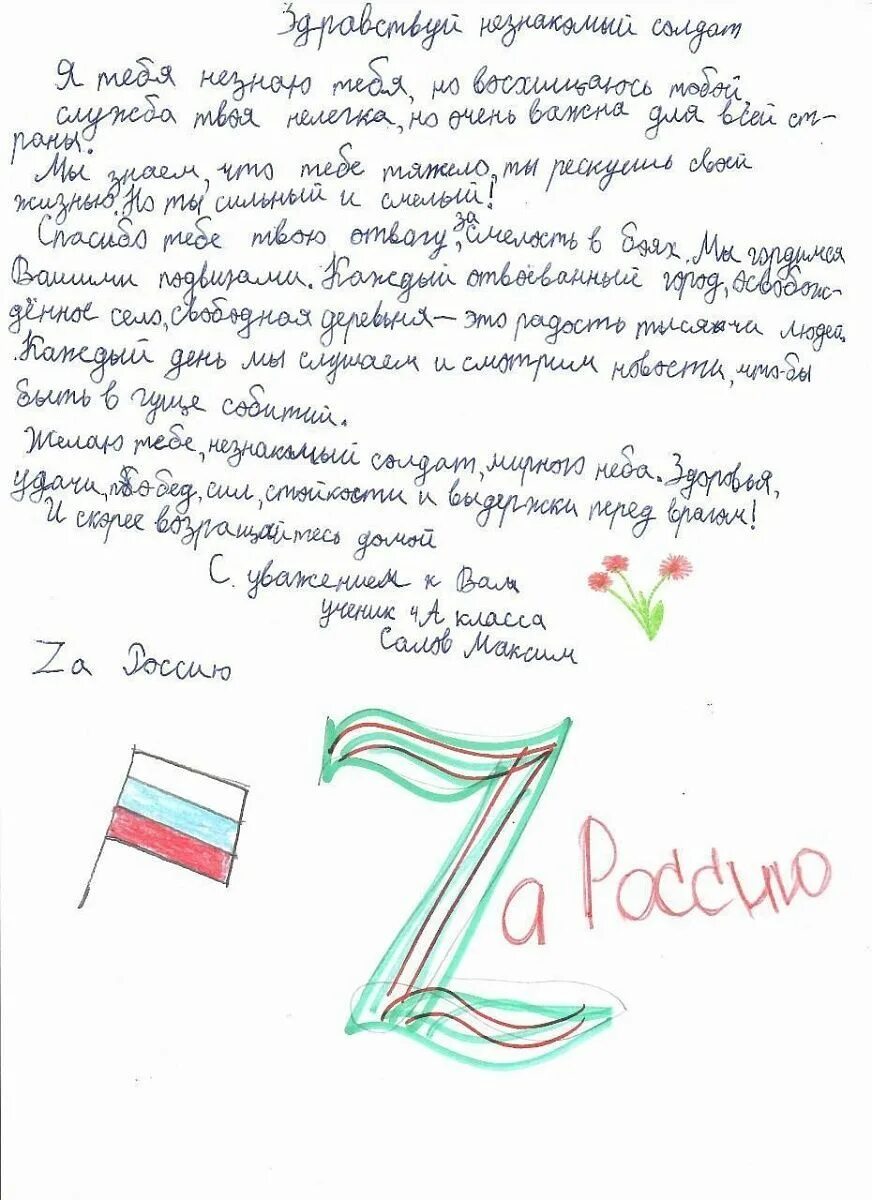 Здравствуй незнакомый солдат
Я тебя незнаю тебя, но восхищаюсь тобой,
служба твоя нелегка, но очень важна для всей ст-
раны.
Мы знаем, что тебе тяжело, ты рескуешь своей
жизнью. Но ты сильный и смелый!
Спасибо тебе твою отвагу, за смелость в боях. Мы гордимся
Вашими подвигами. Каждый отвоёванный город, освобож-
дённое село, свободная деревьня – это радость тысячи людей.
Каждый день мы слушаем и смотрим новости, что-бы
быть в гуще событий.
Желаю тебе, незнакомый солдат, мирного неба. Здоровья,
удачи, побед, сил, стойкости и выдержки перед врагом!
И скорее возращайтесь домой
С уважением к Вам
ученик 4А класса
Салов Максим
Zа Россию
Zа Россию